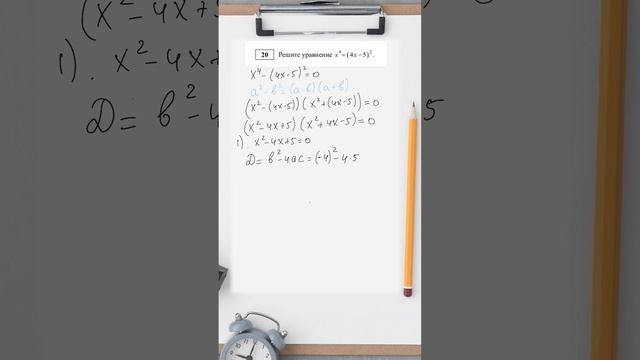 20 Решите уравнение x⁴=(4x−5)².
x⁴−(4x−5)²=0
a²−b²=(a-b)(a+b)
(x²−(4x-5))(x²+(4x−5))=0
(x²−4x+5)(x²+4x−5)=0
1). x²−4x+5=0
D= b²−4ac=(-4)²−4·5